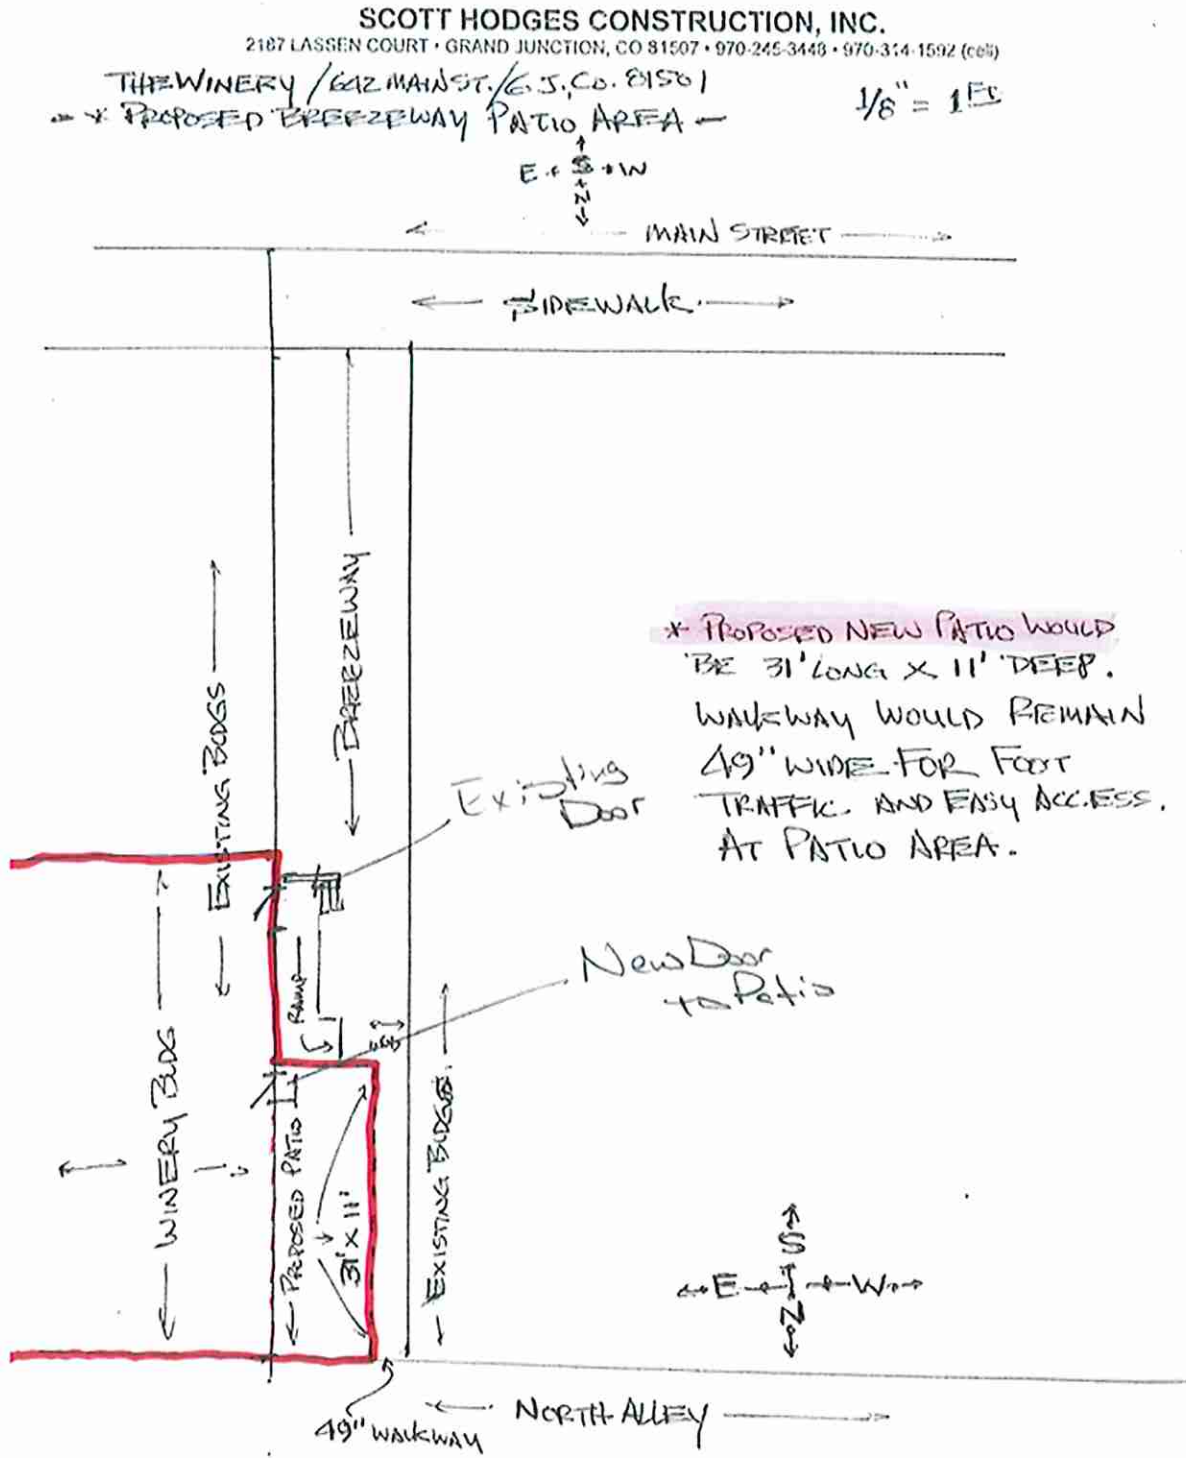 SCOTT HODGES CONSTRUCTION, INC.
2187 LASSEN COURT • GRAND JUNCTION, CO 81507 • 970-245-3448 • 970-314-1592 (cell)
THE WINERY / 642 MAIN ST. / G.J., CO. 81501
* PROPOSED BREEZEWAY PATIO AREA
1/8" = 1 Ft
E S W
N
MAIN STREET
SIDEWALK
BREEZEWAY
EXISTING BLDGS
* PROPOSED NEW PATIO WOULD
BE 31' LONG X 11' DEEP.
WALKWAY WOULD REMAIN
49" WIDE FOR FOOT
TRAFFIC AND EASY ACCESS.
AT PATIO AREA.
Existing
Door
RAMP
New Door
to Patio
WINERY BLDG
PROPOSED PATIO
31' X 11'
EXISTING BLDGS
S
E W
N
49" WALKWAY
NORTH ALLEY